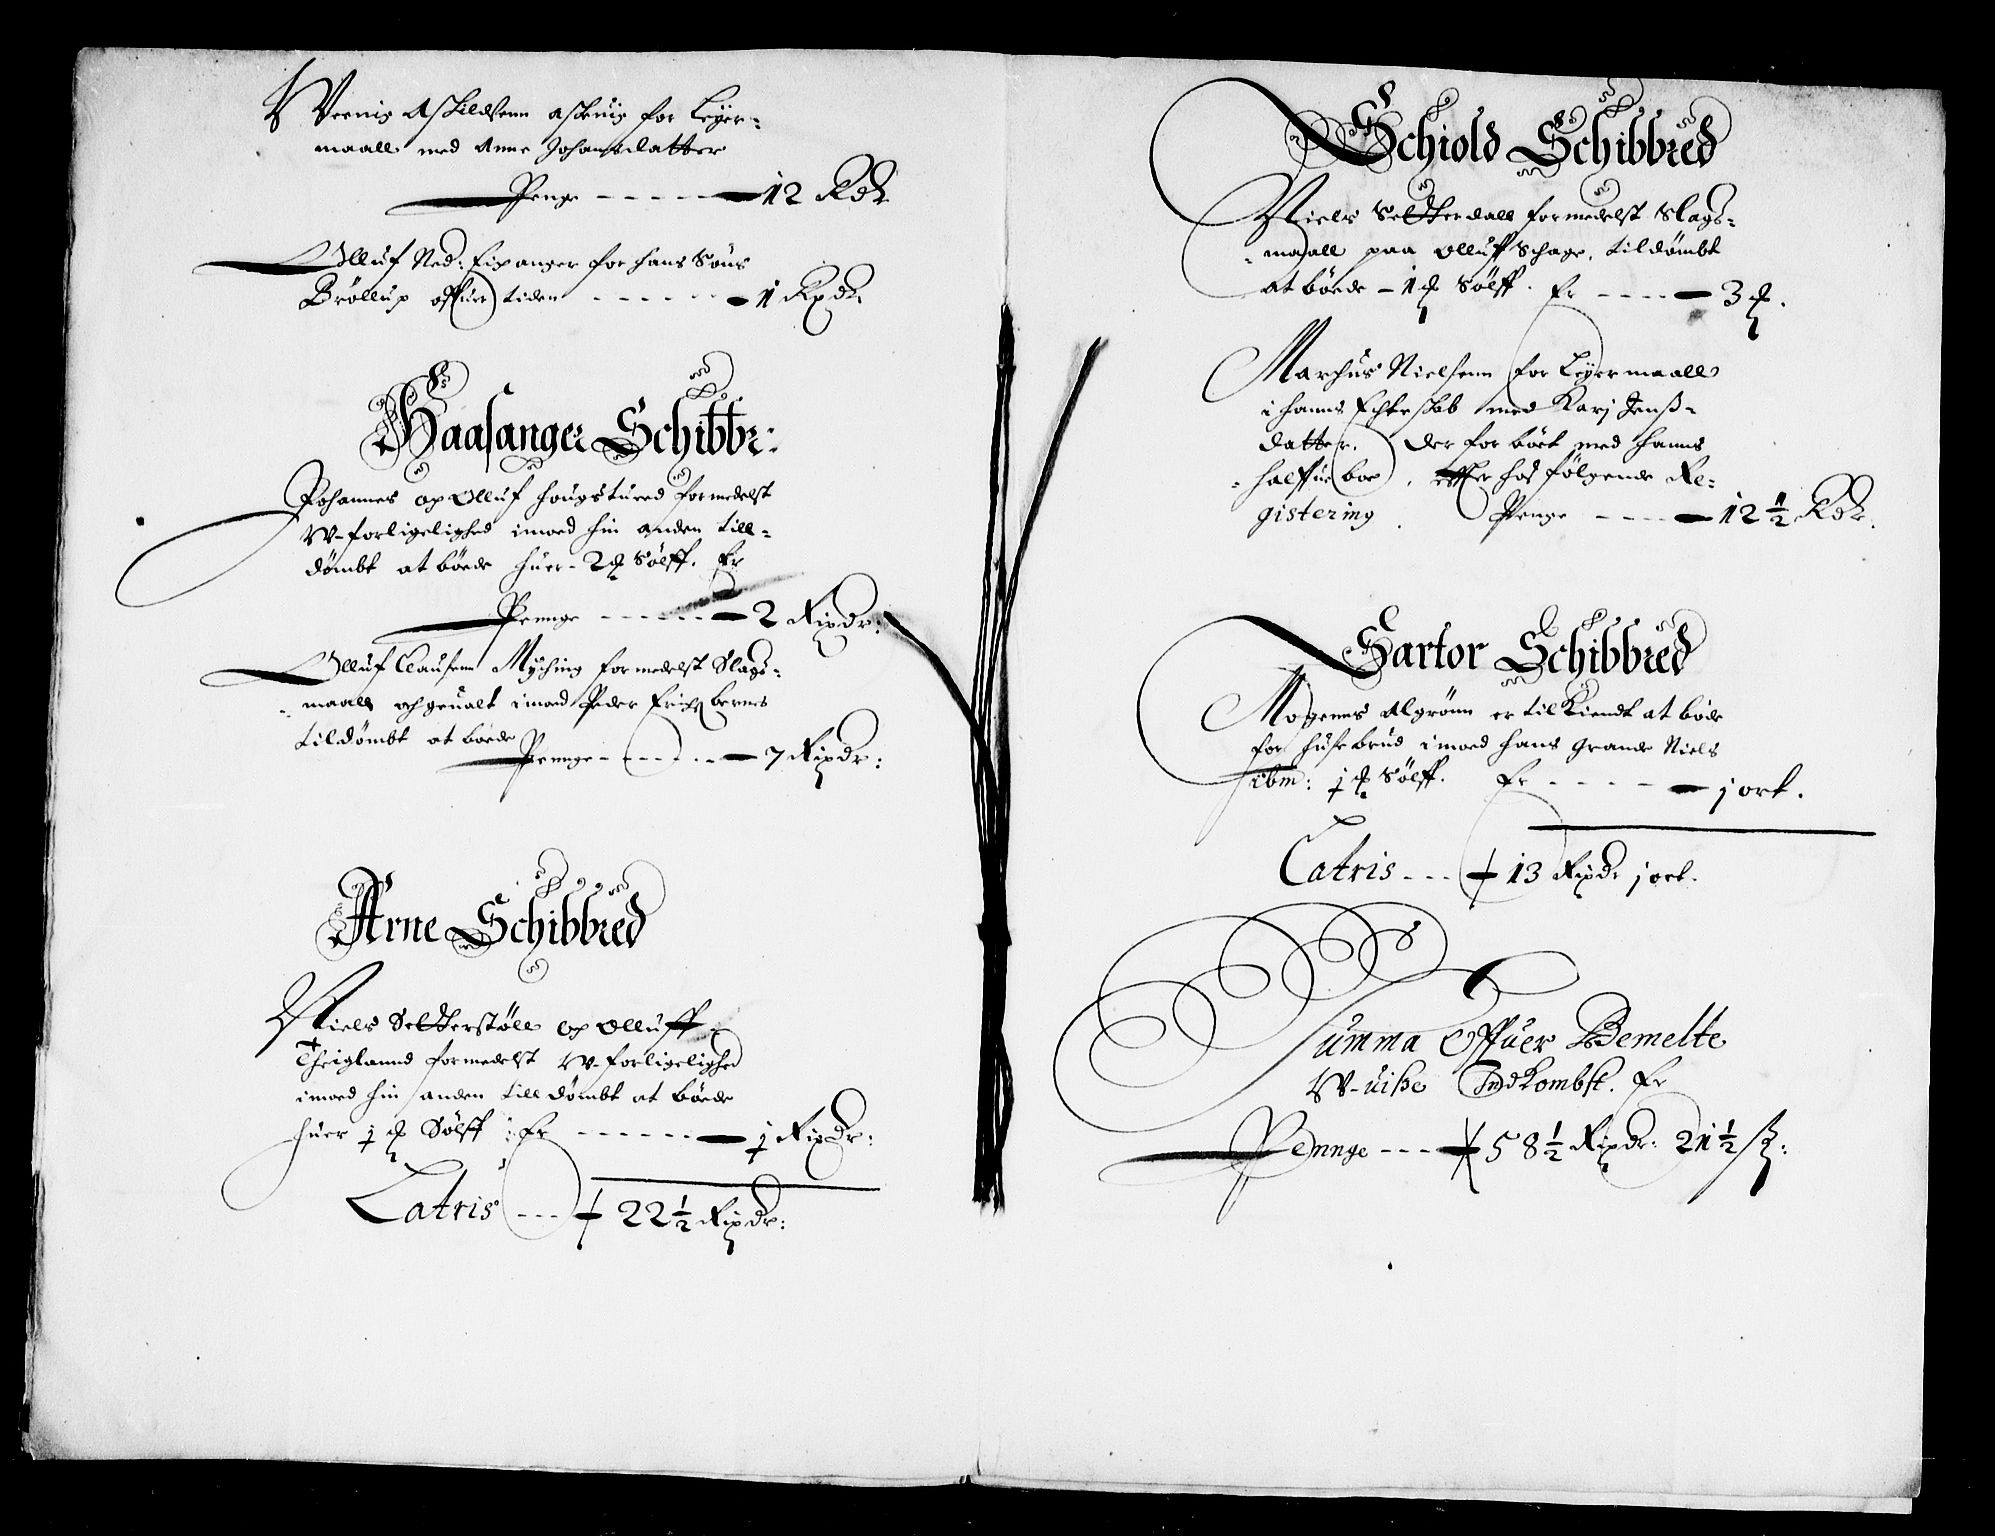 Wernis Askildsenn askuig for Leyer-
maall med Anne Johansdatter
Penge - - - - - 12 Rdr
Olluf Ned: Eixanger for hans Søns
Brøllup offuer tiden - - - - - 1 Rixdr
Haasanger Schibbr:
Johannes og Olluf Hougstued formedelst
W-forligelighed imod hin anden till-
dømbt at bøede huer - 2 ℔ Sølff. Er
Pennge - - - - - - 2 Rixdr:
Olluf Clausenn Myching formedelst Slags-
-maall och geualt imod Peder Erichs bernes
tildømbt at bøede
Pennge - - - - - - 7 Rixdr:
Arne Schibbred
Niels Setterstøll og Olluff
Theiglannd formedelst W-forligelighed
imod hin anden till dømbt at bøede
huer j ℔ Sølff : Er - - - - - - j Rixdr:
Latris - - - 22½ Rixdr:
Schiold Schibbred
Niels Setterdall formedelst Slags-
-maall paa Olluff Schage, tildømbt
at bøede - 1 ℔ Sølff. Er - - - - 3 ℔.
Marchus Nielsenn for Leyermaall
i hanns Echteskab med Karj Jenß-
datter. Der for bøet med hanns
-halffue boe, effter hos følgende Re-
gistering. Penge - - - - 12½ Rdr.
Sartor Schibbred
Mogenns Algrønn er tilkiendt at bøde
for husebrud imod hans Grande Niels
ibm: j ℔ Sølff. Er - - - - - j ort.
Latris - - - 13 Rixdr j ort.
Summa Offuer Bemelte
W-uiße Indkombst. Er
Pennge - - - 58½ Rixdr: 21½ ß: